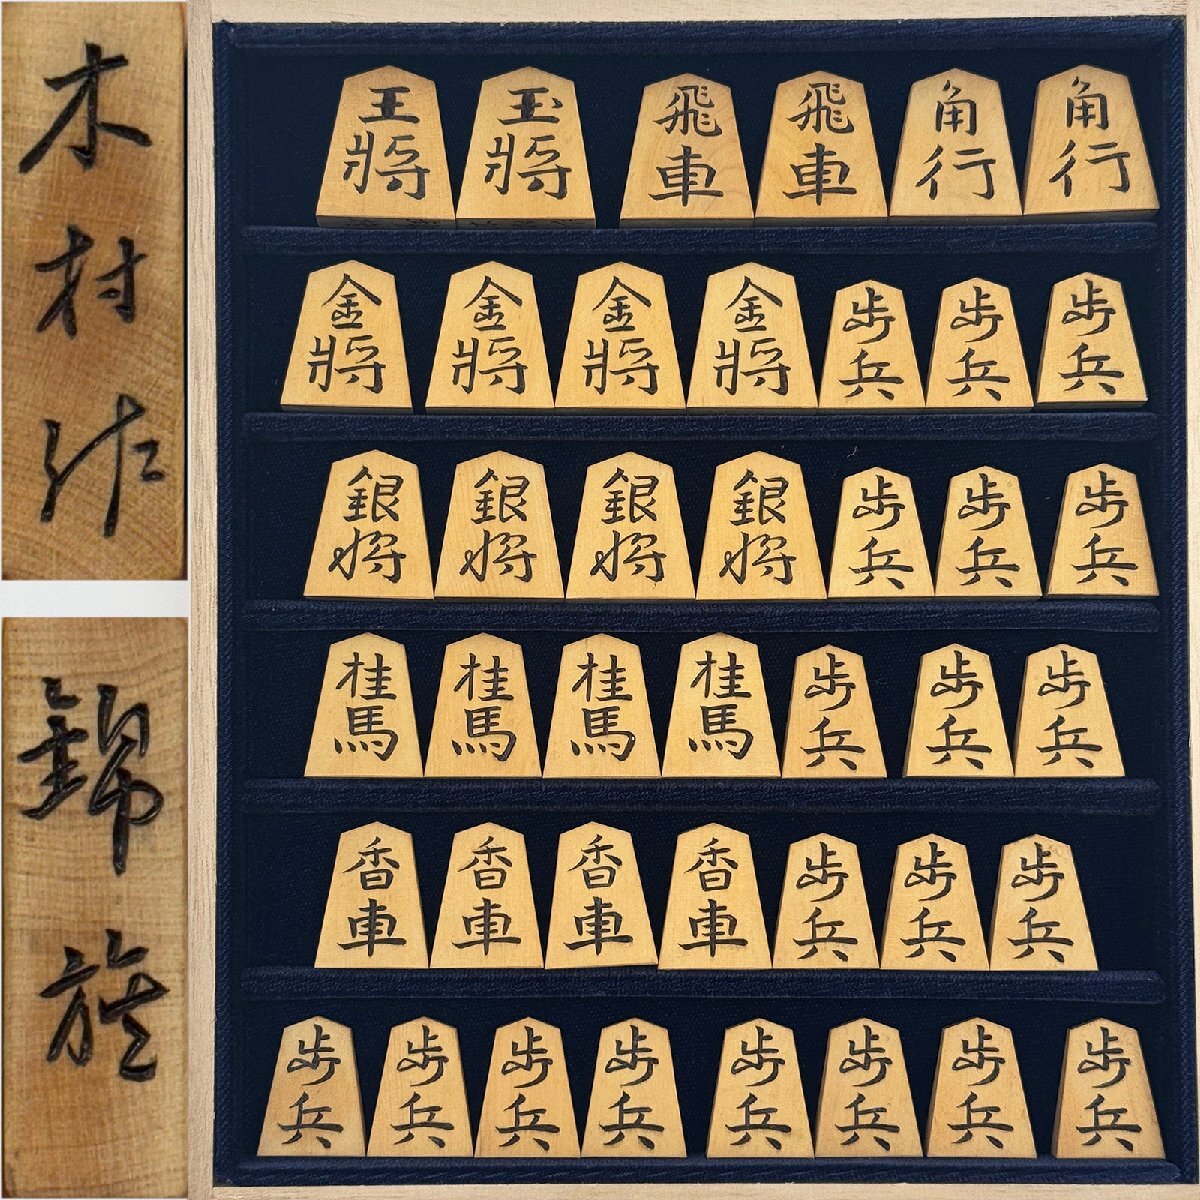 木村作
錦旗
王將 玉將 飛車 飛車 角行 角行
金將 金將 金將 金將 歩兵 歩兵 歩兵
銀将 銀将 銀将 銀将 歩兵 歩兵 歩兵
桂馬 桂馬 桂馬 桂馬 歩兵 歩兵 歩兵
香車 香車 香車 香車 歩兵 歩兵 歩兵
歩兵 歩兵 歩兵 歩兵 歩兵 歩兵 歩兵 歩兵